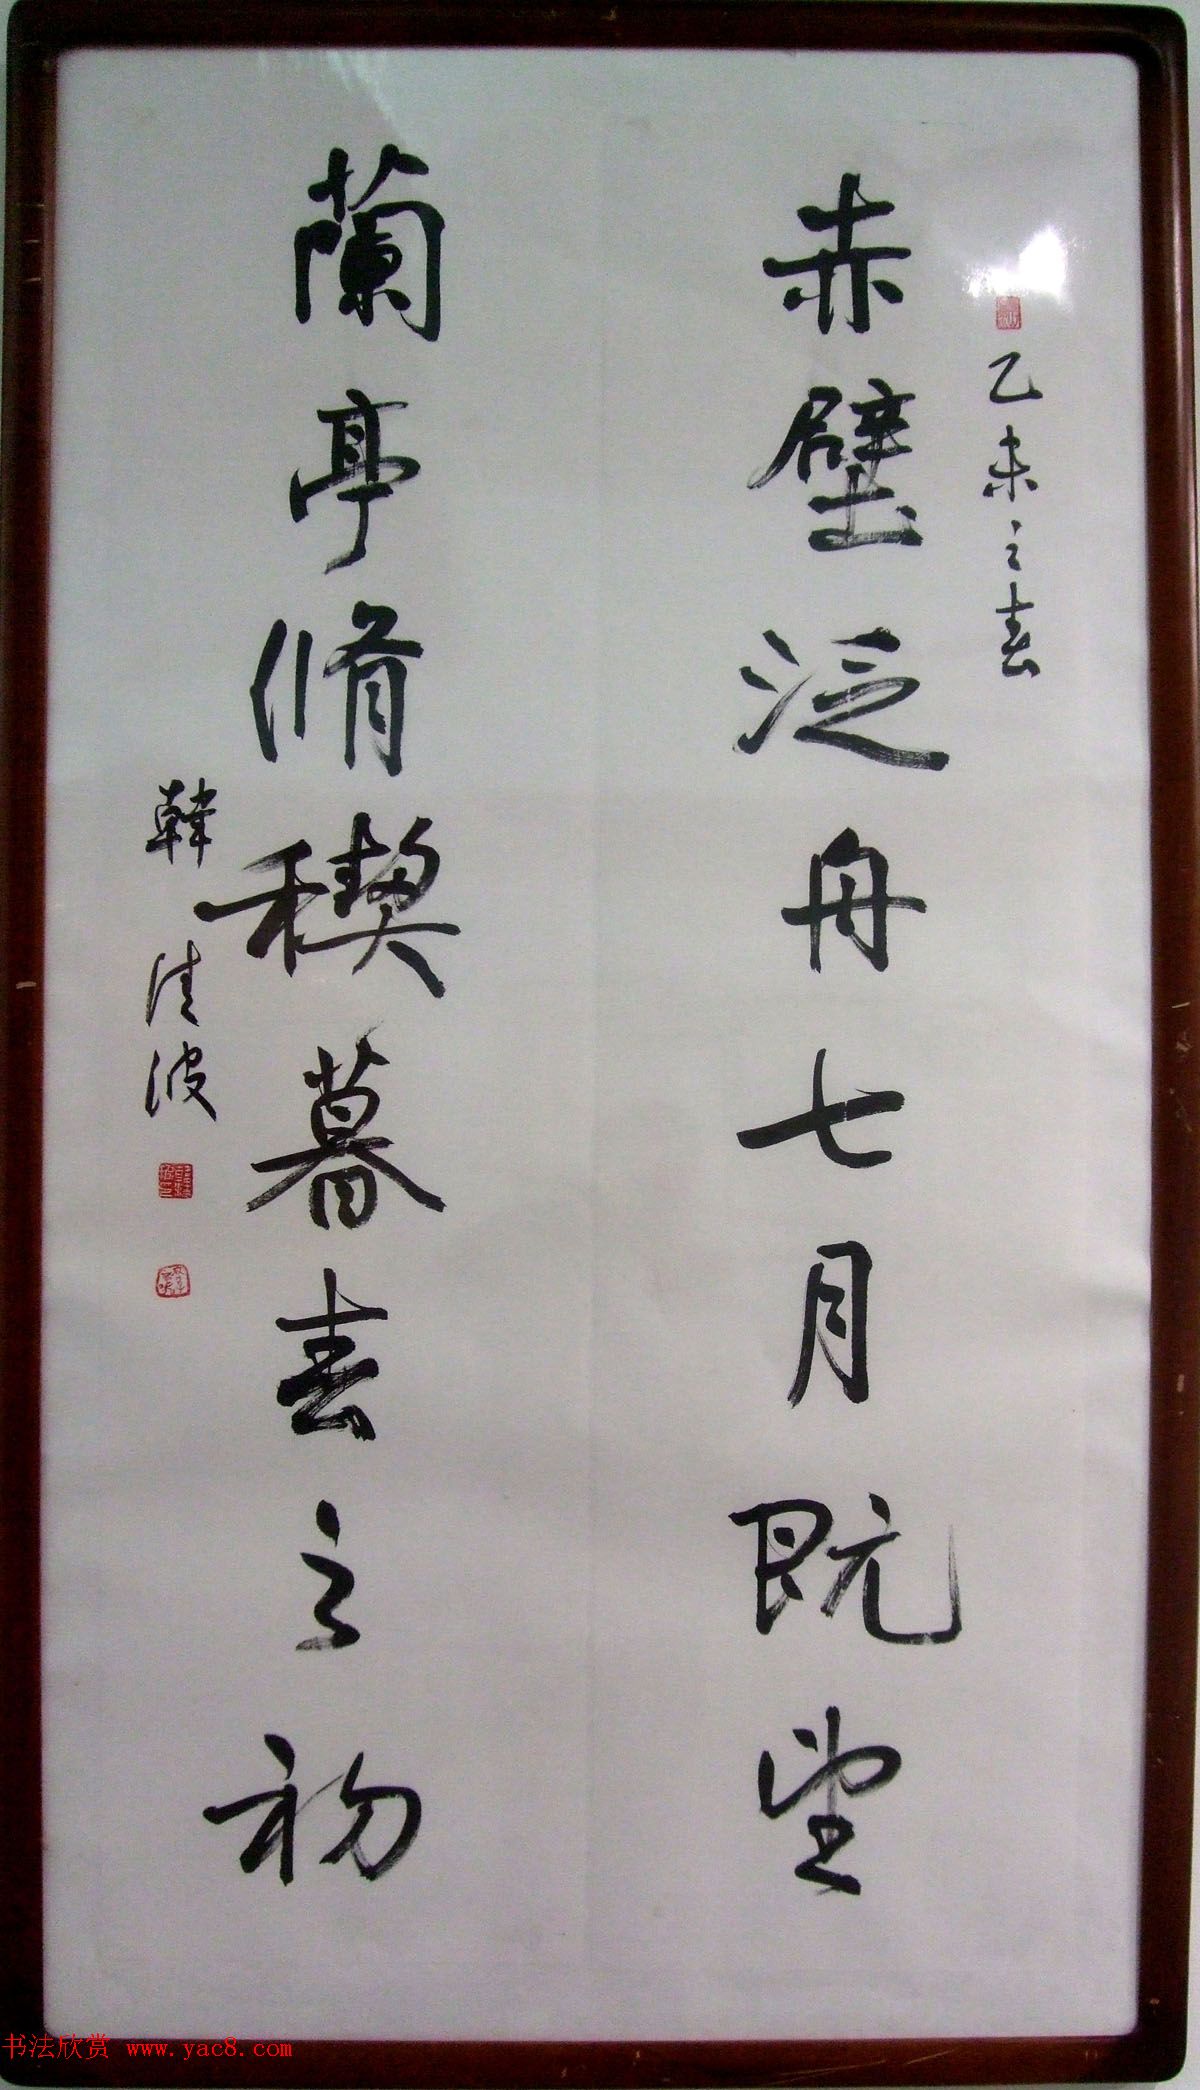 乙未之春
赤壁泛舟七月既望
蘭亭脩禊暮春之初
韓清波
书法欣赏 www.yac8.com